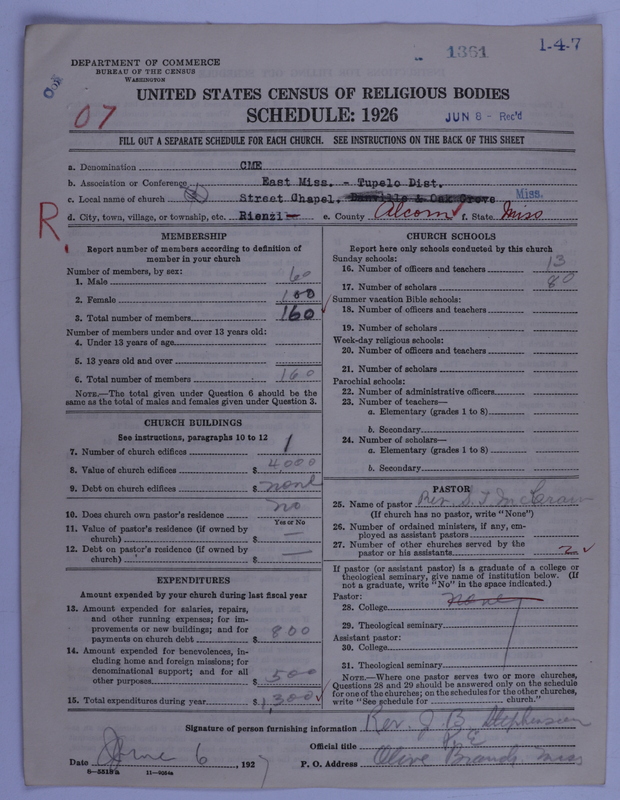 1361
1-4-7
DEPARTMENT OF COMMERCE
BUREAU OF THE CENSUS
WASHINGTON
UNITED STATES CENSUS OF RELIGIOUS BODIES
07
SCHEDULE: 1926
JUN 8 - Rec'd
FILL OUT A SEPARATE SCHEDULE FOR EACH CHURCH. SEE INSTRUCTIONS ON THE BACK OF THIS SHEET
a. Denomination CME
b. Association or Conference East Miss. - Tupelo Dist.
c. Local name of church Street Chapel, Danville & Oak Grove Miss.
R. d. City, town, village, or township, etc. Rienzi e. County Alcorn f. State Miss
MEMBERSHIP
Report number of members according to definition of
member in your church
Number of members, by sex:
1. Male 60
2. Female 100
3. Total number of members 160
Number of members under and over 13 years old:
4. Under 13 years of age
5. 13 years old and over
6. Total number of members 160
NOTE.—The total given under Question 6 should be the
same as the total of males and females given under Question 3.
CHURCH BUILDINGS
See instructions, paragraphs 10 to 12
7. Number of church edifices 1
8. Value of church edifices $ 4,000
9. Debt on church edifices $ none
10. Does church own pastor's residence no
Yes or No
11. Value of pastor's residence (if owned by
church) $ —
12. Debt on pastor's residence (if owned by
church) $ —
EXPENDITURES
Amount expended by your church during last fiscal year
13. Amount expended for salaries, repairs,
and other running expenses; for im-
provements or new buildings; and for
payments on church debt $ 800
14. Amount expended for benevolences, in-
cluding home and foreign missions; for
denominational support; and for all
other purposes $ 500
15. Total expenditures during year $ 1,300
CHURCH SCHOOLS
Report here only schools conducted by this church
Sunday schools:
16. Number of officers and teachers 13
17. Number of scholars 80
Summer vacation Bible schools:
18. Number of officers and teachers
19. Number of scholars
Week-day religious schools:
20. Number of officers and teachers
21. Number of scholars
Parochial schools:
22. Number of administrative officers
23. Number of teachers—
a. Elementary (grades 1 to 8)
b. Secondary
24. Number of scholars—
a. Elementary (grades 1 to 8)
b. Secondary
PASTOR
25. Name of pastor Rev. S. T.
(If church has no pastor, write "None")
26. Number of ordained ministers, if any, em-
ployed as assistant pastors
27. Number of other churches served by the
pastor or his assistants
If pastor (or assistant pastor) is a graduate of a college or
theological seminary, give name of institution below. (If
not a graduate, write "No" in the space indicated.)
Pastor:
28. College none
29. Theological seminary
Assistant pastor:
30. College
31. Theological seminary
NOTE.—Where one pastor serves two or more churches,
Questions 28 and 29 should be answered only on the schedule
for one of the churches; on the schedules for the other churches,
write "See schedule for church."
Signature of person furnishing information Rev. J. B. Stephenson
Official title P E
Date June 6, 1927 P. O. Address Olive Branch, Miss
8—5518a 11—9054a